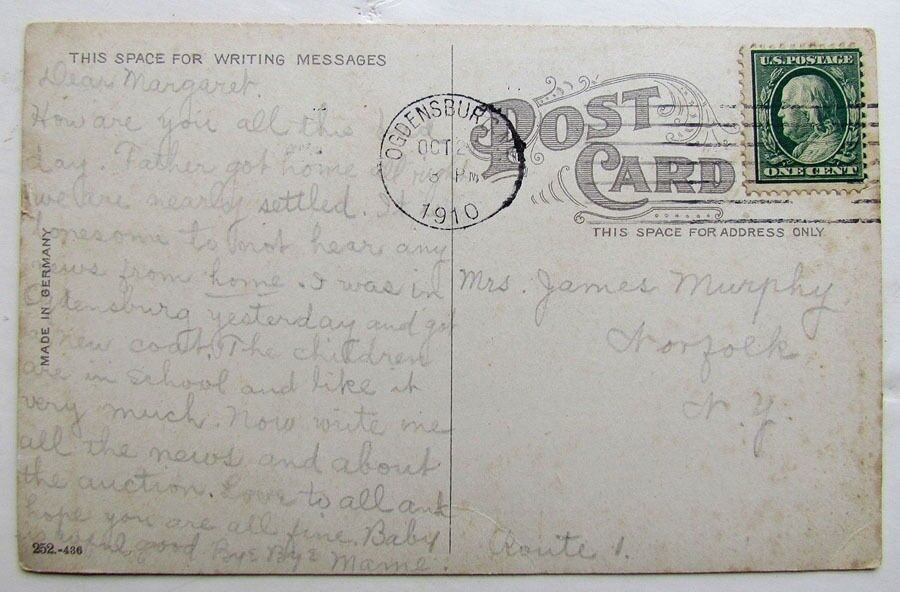 THIS SPACE FOR WRITING MESSAGES
Dear Margaret
How are you all this
day. Father got home all right
we are nearly settled. It
lonesome to not hear any
news from home. I was in
Ogdensburg yesterday and got
new coat. The children
are in school and like it
very much. Now write me
all the news and about
the auction. Love to all and
hope you are all fine. Baby
good Bye Bye
Mame.
MADE IN GERMANY
252.-436
OGDENSBURG
OCT 2
PM
1910
POST
CARD
U.S. POSTAGE
ONE CENT
THIS SPACE FOR ADDRESS ONLY
Mrs. James Murphy
Norfolk
N. Y.
Route 1.